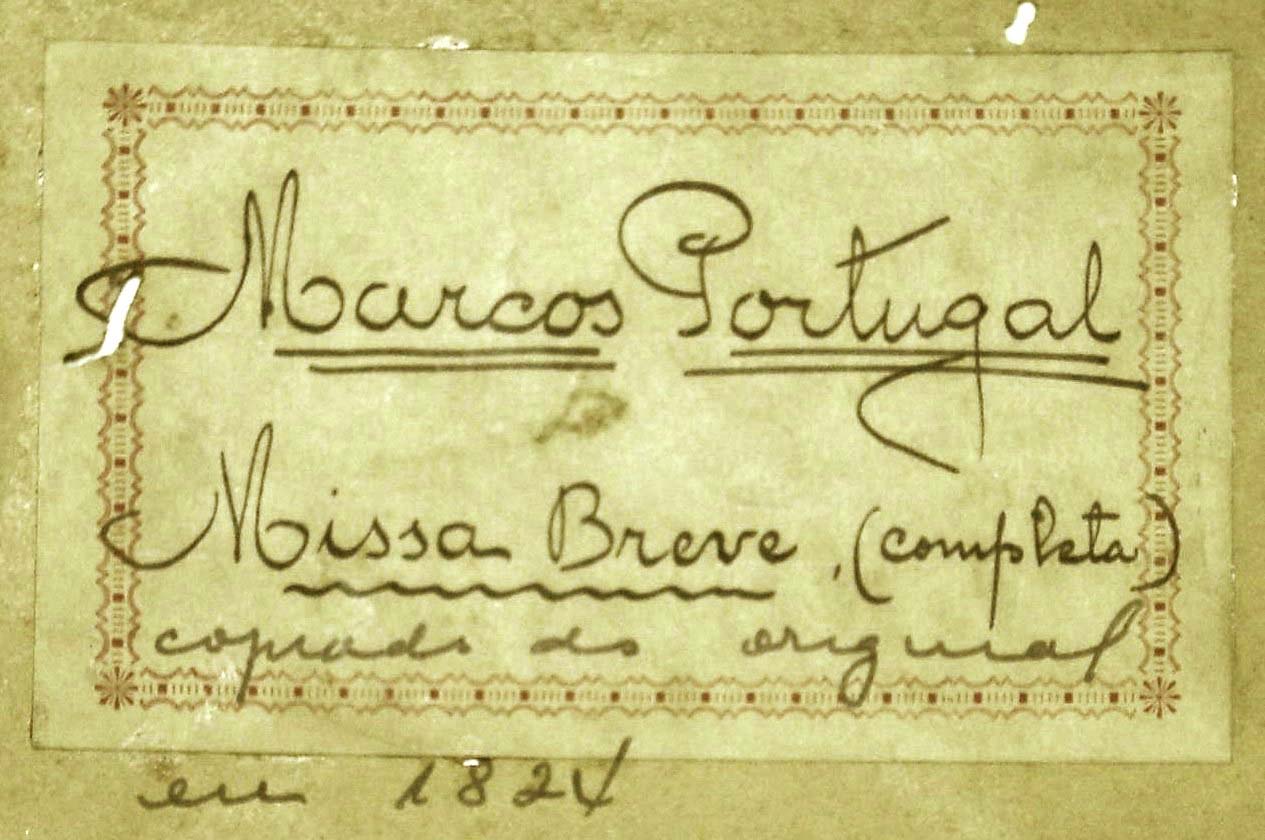 Marcos Portugal
Missa Breve, (completa)
copiado do original
em 1824